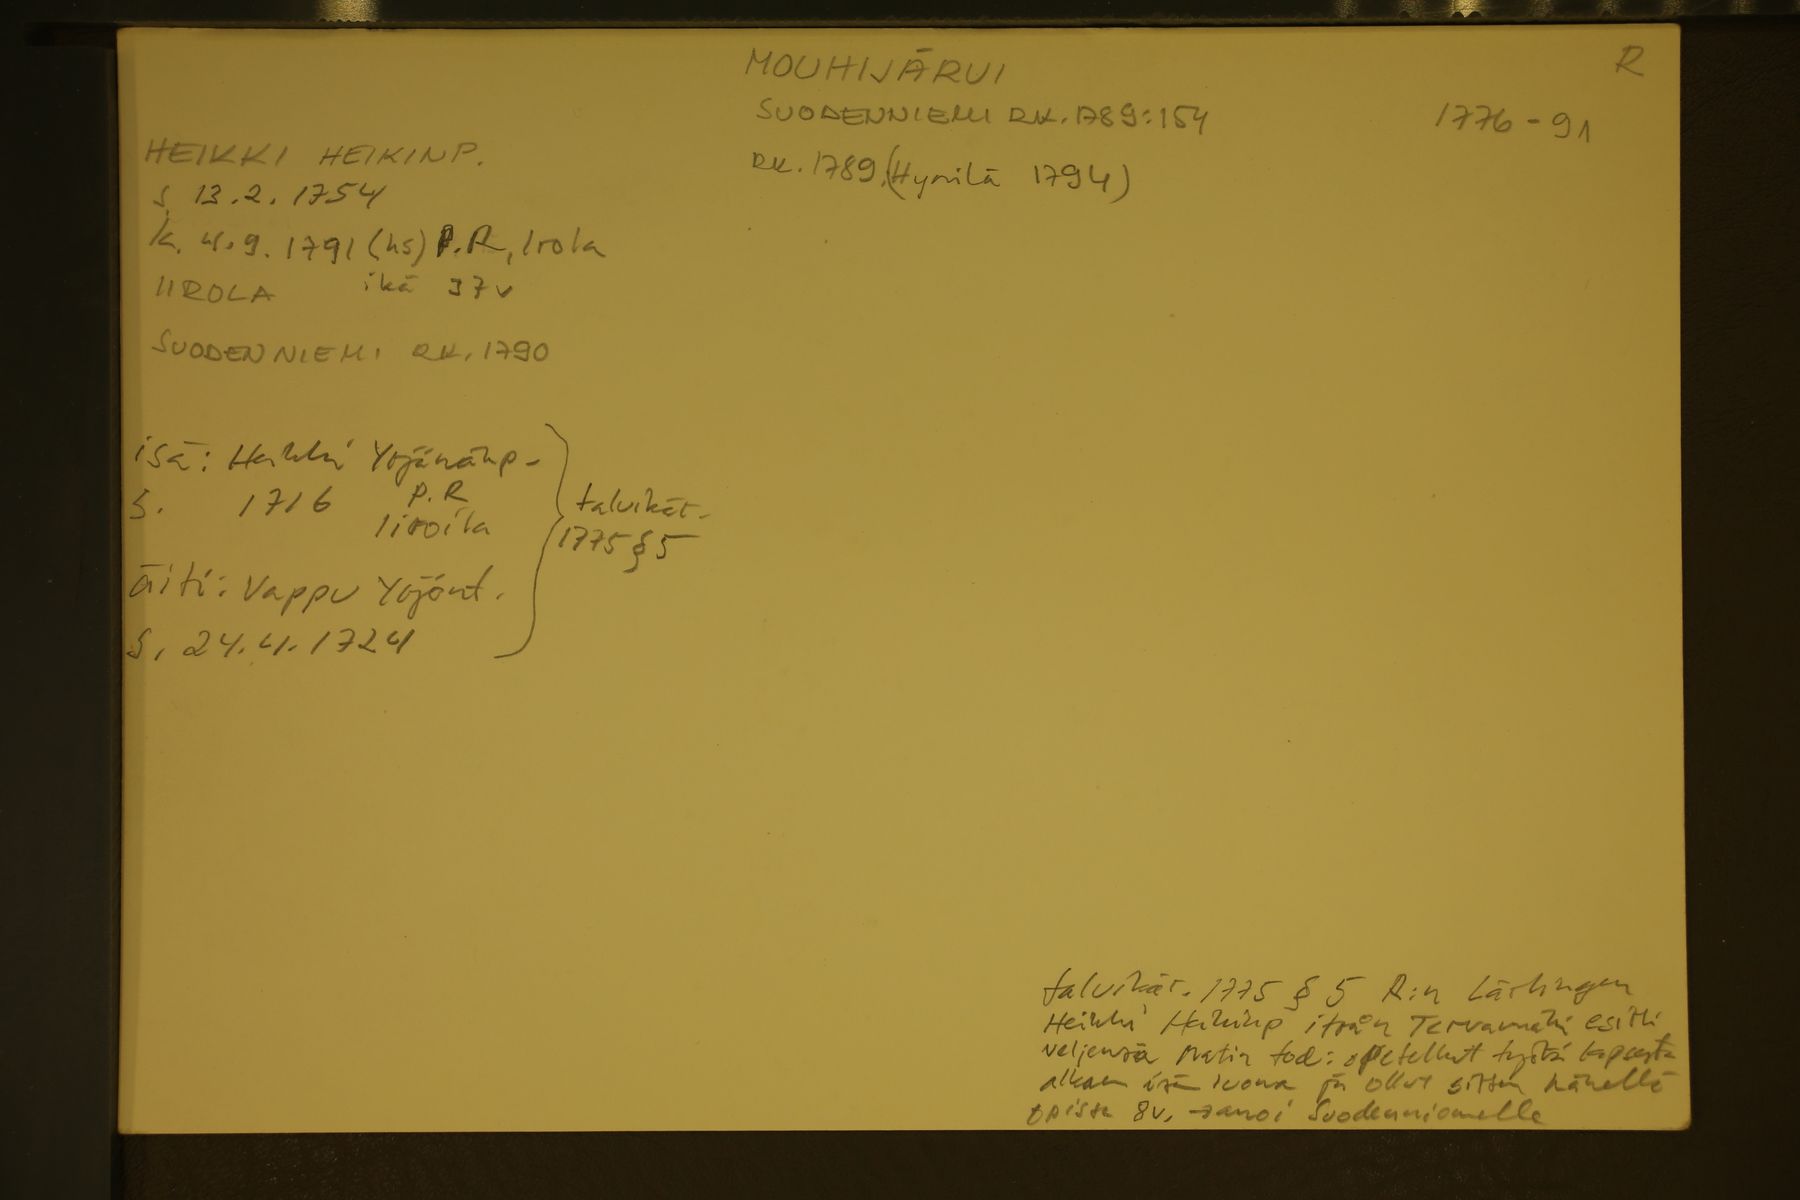 MOUHIJÄRVI
R
SUODENNIEMI RK. 1789:154
1776-91
RK. 1789. (Hyrsilä 1794)
HEIKKI HEIKINP.
S. 13.2.1754
k. 4.9.1791 (hs) P.R, Irola
IIROLA ikä 37v
SUODENNIEMI RK. 1790
isä: Heikki Yrjänänp.
S. 1716 P.R
Iiroila
äiti: Vappu Yrjönt.
S. 24.4.1724
talvikär.
1775 § 5
talvikär. 1775 § 5 R:n Lärlingen
Heikki Heikinp isän Tervamäki esitti
veljensä Matin tod: opetellut työtä lapsesta
alkaen isän luona ja ollut sitten hänellä
opissa 8v, sanoi Suodenniemellä